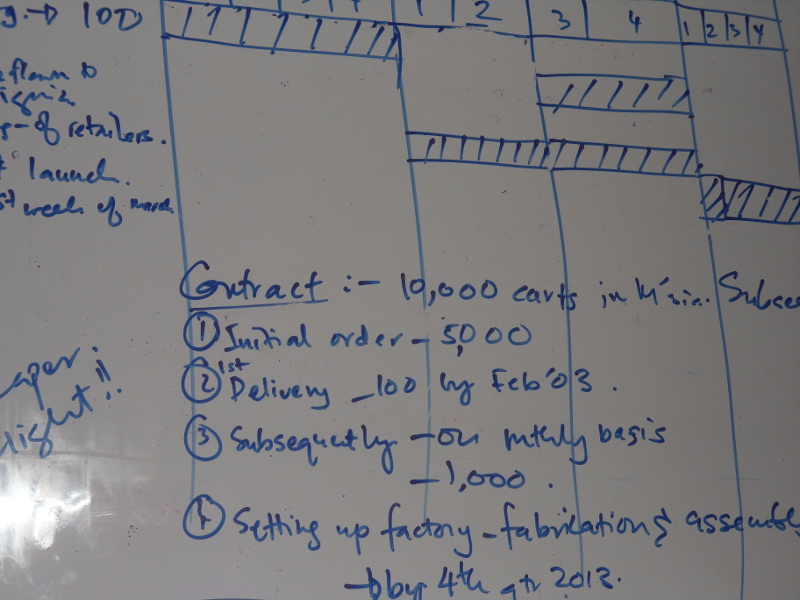 → 100
1 2 3 4 1 2 3 4
flown to
- of retailers.
launch.
week of march
Contract :- 10,000 carts in M'sia.
① Initial order - 5,000
② 1st Delivery - 100 by Feb'03.
③ Subsequently - on mthly basis
- 1,000.
④ Setting up factory - fabrication &
→ by 4th qtr 2013.